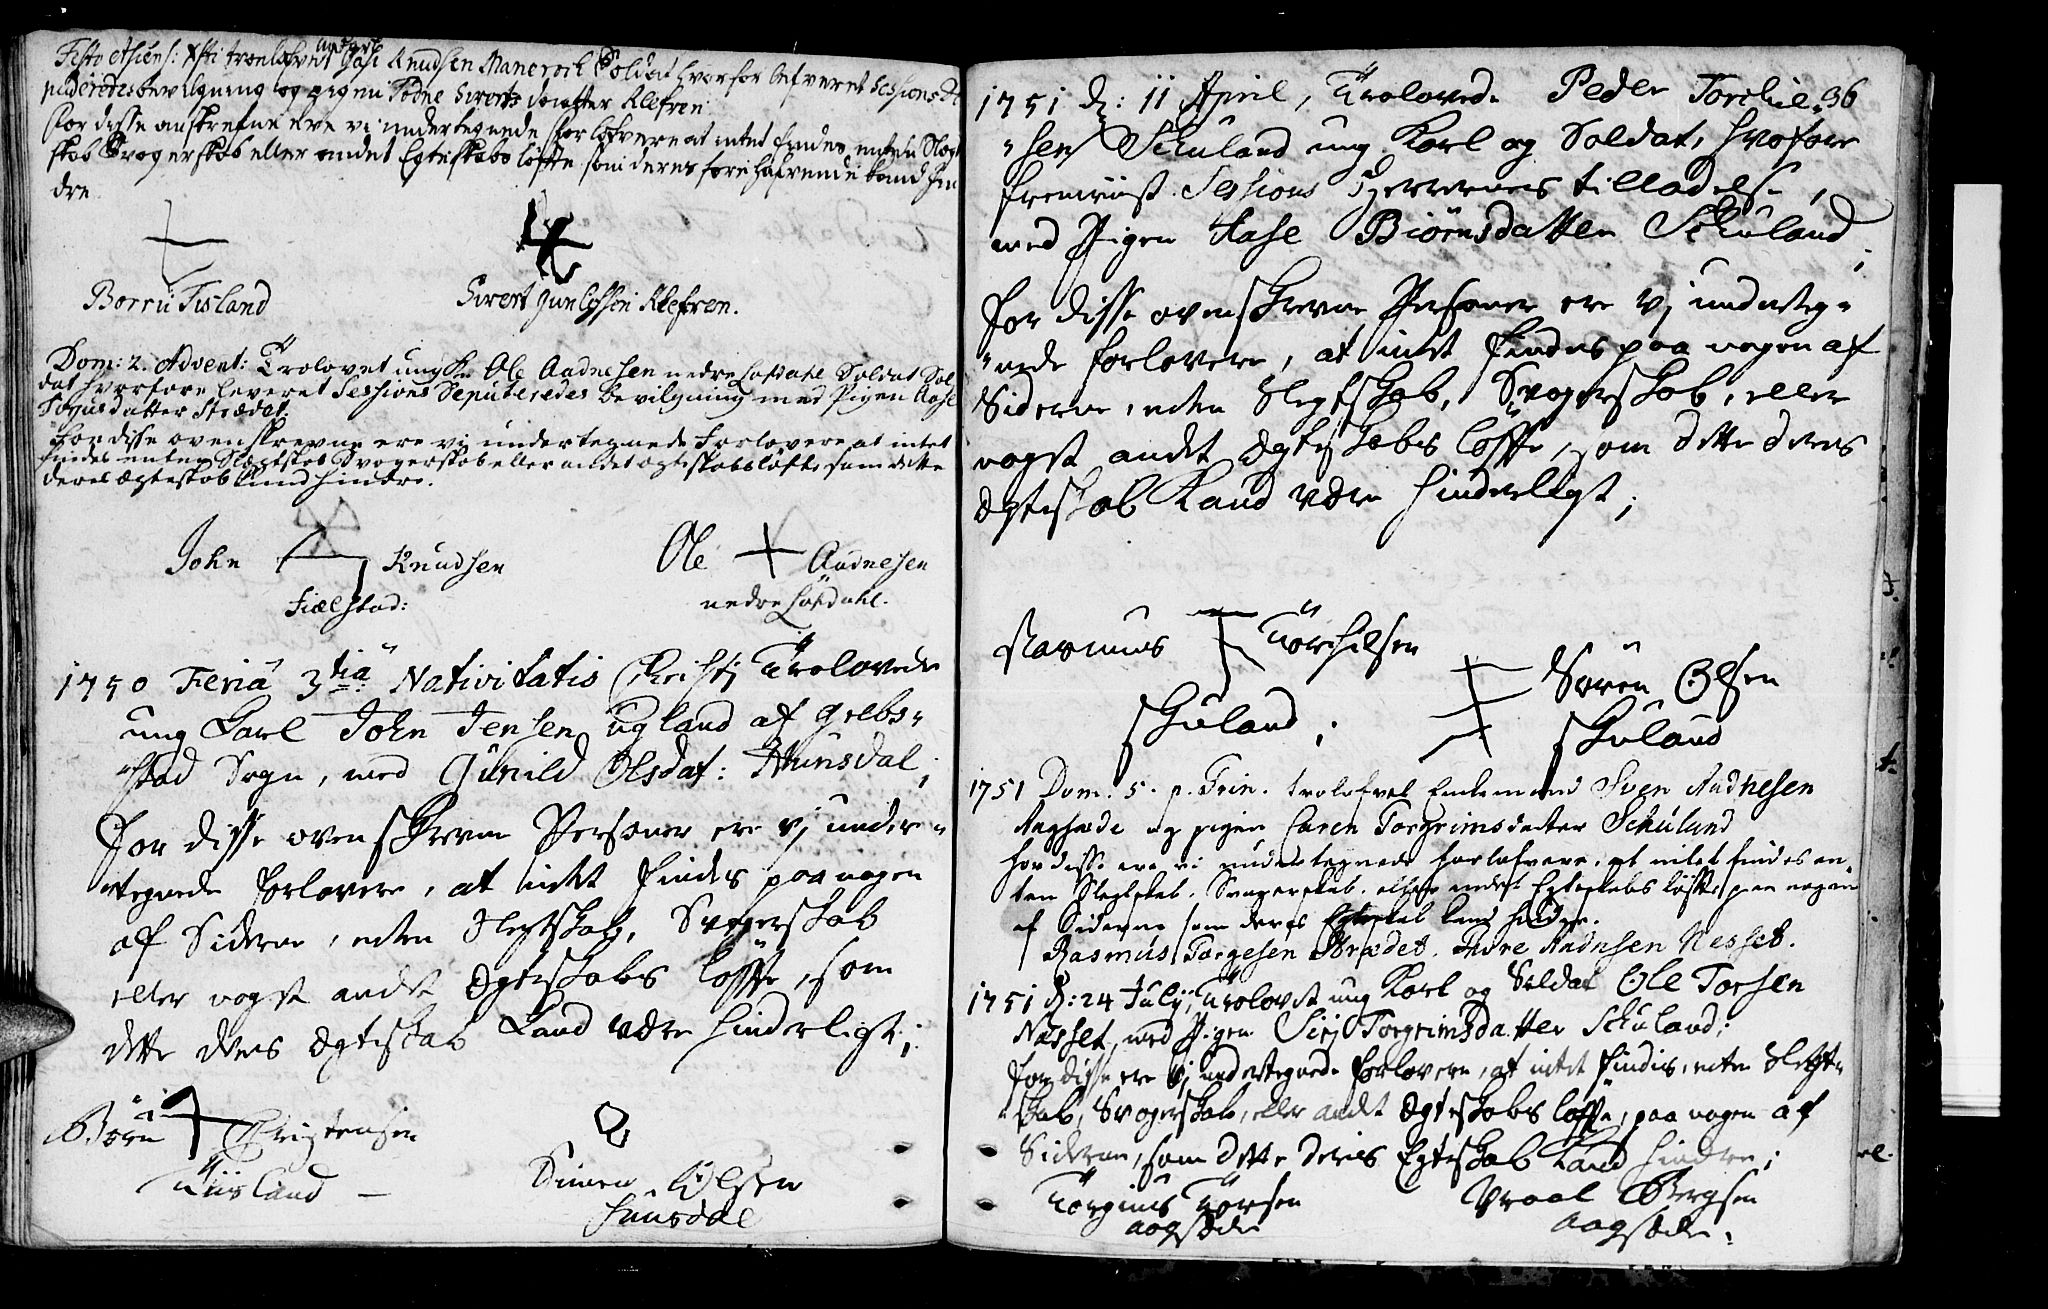 Festo Ascens: Xsti troelofvet Aasi Knudsen Maneroch Soldat hvorfor lefveret Sessions De
puteredes bevilgning og pigen Todne Siverts daatter Klefren.
For disse anskrefne ere vi undertegnede forlofvere at intet findes enten Slegt
skab Svogerskab eller andet Egteskabs løfte som deres forehafvende kand hin
dre.
Borru Tisland
Sivert Gunlefsen Klefren.
Dom: 2. Advent: Trolovet ung K. Ole Aadnesen nedre Løfdahl Soldat Sol
dat hvorfore leveret Sessions Deputeredes bevilgning med Pigen Aase
datter Strædet.
For disse ovenskrevne ere vj undertegnede Forlovere at intet
findes enten Slegtskab Svogerskab eller andet ægteskabs løfte som dette
deres ægteskab kand hindre.
John Knudsen
Fiælstad:
Ole Aadnesen
nedre Løfdahl.
1750 Feriâ 3tia Nativitatis Christi Trolovede
ung Karl John Jensen Ugland af Giebs-
-stad Sogn, med Gunild Olsdat: Hunsdal;
for disse ovenskrevne Personer ere vj under-
-tegnede forlovere, at intet findes paa nogen
af Siderne, enten Slegtskab, Svogerskab
eller nogst andet Ægteskabs løffte, som
dette deres Ægteskab kand være hinderligt;
Börn Christensen
Tiisland
Simen Olsen
Hunsdal
36
1751 d: 11 April, Trolovede Peder Torchel-
-sen Schuland ung Karl og Soldat, hvofore
fremviist Sessions Herrernes tilladelse,
med Pigen Aase Biörnsdatter Schuland;
for disse ovenskrevne Personer ere vj underteg-
-nede forlovere, at intet findes paa nogen af
Siderne, enten Slegtskab, Svogerskab, eller
nogst andet Ægteskabs løffte, som dette deres
Ægteskab kand være hinderligt;
Rasmus Törchilsen
Skuland;
Søren Olsen
Skuland
1751 Dom. 5. p. Trin. trolofvet Enkemand Sven Aadnesen
Aagsæde og pigen Caren Torgrimsdatter Schuland
for disse ere vi undertegnede forlofvere, at intet findes en-
ten Slegtskab, Svogerskab, eller andet Egteskabs løffte paa nogen
af Siderne som deres Egteskab kand hindre.
Rasmus Torgesen Strædet. Tedre Aadnsen Nesset.
1751 d: 24 July, Trolovet ung Karl og Soldat Ole Torsen
Næsset, med Pigen Sirj Torgrimsdatter Schuland;
for disse ere vj undertegnede forlovere, at intet findis, enten Slegt-
skab, Svogerskab, eller andet Ægteskabs løffte, paa nogen af
Siderne, som dette deres Egteskab kand hindre;
Törgius Törsen
Aagsæde
Vraal Bergsen
Aagsæde.